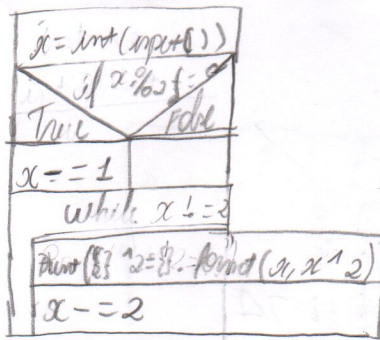 x=int(input())
if x%2!=0
True False
x-=1
while x!=2
print("{}^2={}".format(x,x^2)
x-=2